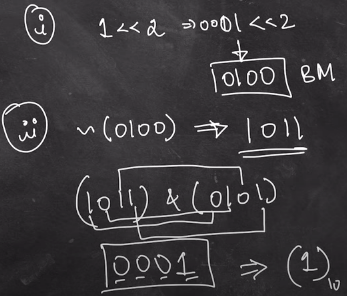 i 1<<2 ⇒ 0001<<2
0100 BM
ii ~(0100) ⇒ 1011
(1011) & (0101)
0001 ⇒ (1)₁₀